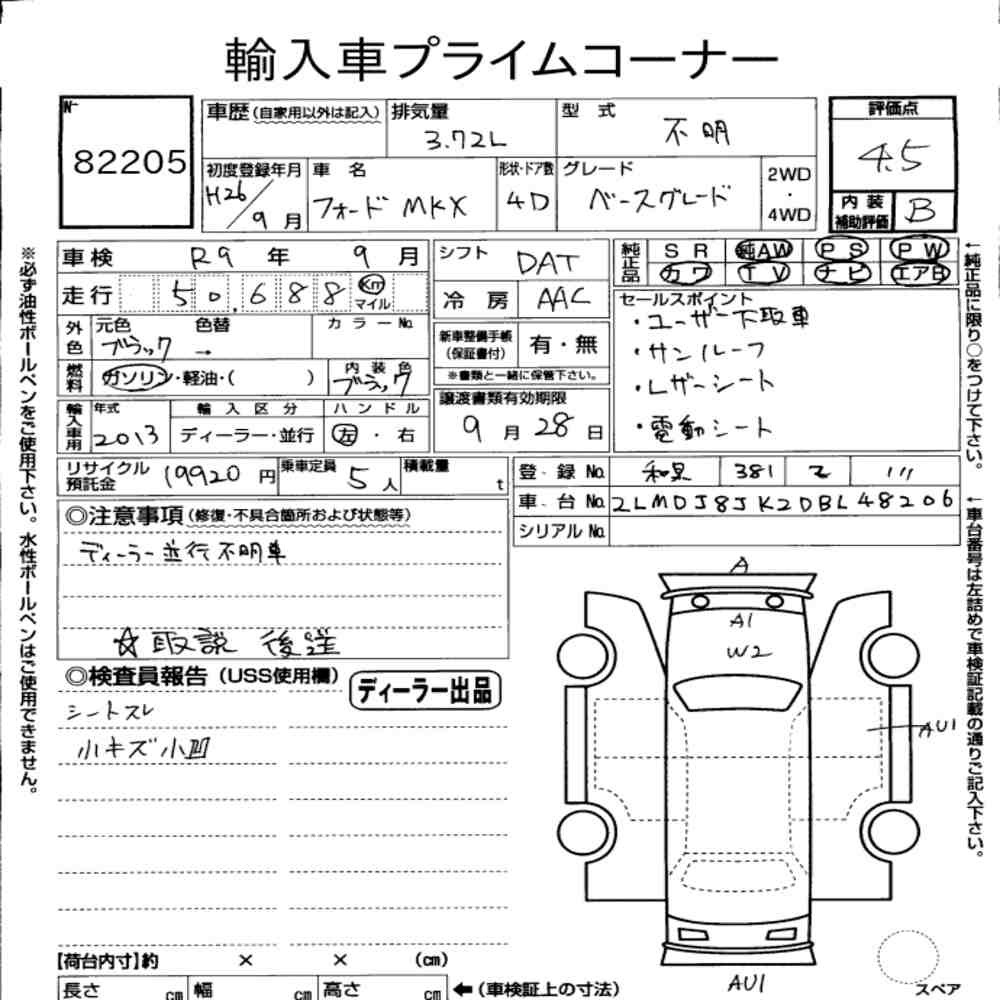 輸入車プライムコーナー
№
82205
車歴(自家用以外は記入)
排気量
3.72L
型 式
不明
評価点
4.5
初度登録年月
H26/9月
車 名
フォード MKX
形状・ドア数
4D
グレード
ベースグレード
2WD
・
4WD
内 装
補助評価
B
車検 R9年 9月
シフト DAT
純正品
SR 純AW PS PW
カワ TV ナビ エアB
走行 50,688 Km マイル
冷 房 AAC
セールスポイント
・ユーザー下取車
・サンルーフ
・レザーシート
・電動シート
外色
元色 ブラック
色替 →
カラーNo.
新車整備手帳
(保証書付)
有・無
※書類と一緒に保管下さい。
燃料
ガソリン・軽油・( )
内 装 色
ブラック
譲渡書類有効期限
9月28日
輸入車用
年式 2013
輸 入 区 分
ディーラー・並行
ハ ン ド ル
左・右
リサイクル預託金 19920円
乗車定員 5人
積載量 t
登 録 No. 和泉 381 る 111
車 台 No. 2LMDJ8JK2DBL48206
シリアル No.
◎注意事項(修復・不具合箇所および状態等)
ディーラー並行不明車
☆取説 後送
◎検査員報告(USS使用欄)
ディーラー出品
シートスレ
小キズ小凹
A
A1
W2
AU1
AU1
スペア
【荷台内寸】約 × × (cm)
長さ cm 幅 cm 高さ cm ←(車検証上の寸法)
※必ず油性ボールペンをご使用下さい。水性ボールペンはご使用できません。
←純正品に限り○をつけて下さい。
←車台番号は左詰めで車検証記載の通りご記入下さい。